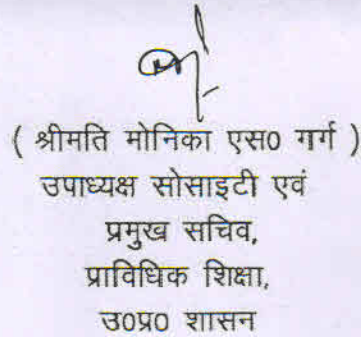 ( श्रीमति मोनिका एस0 गर्ग )
उपाध्यक्ष सोसाइटी एवं
प्रमुख सचिव,
प्राविधिक शिक्षा,
उ0प्र0 शासन